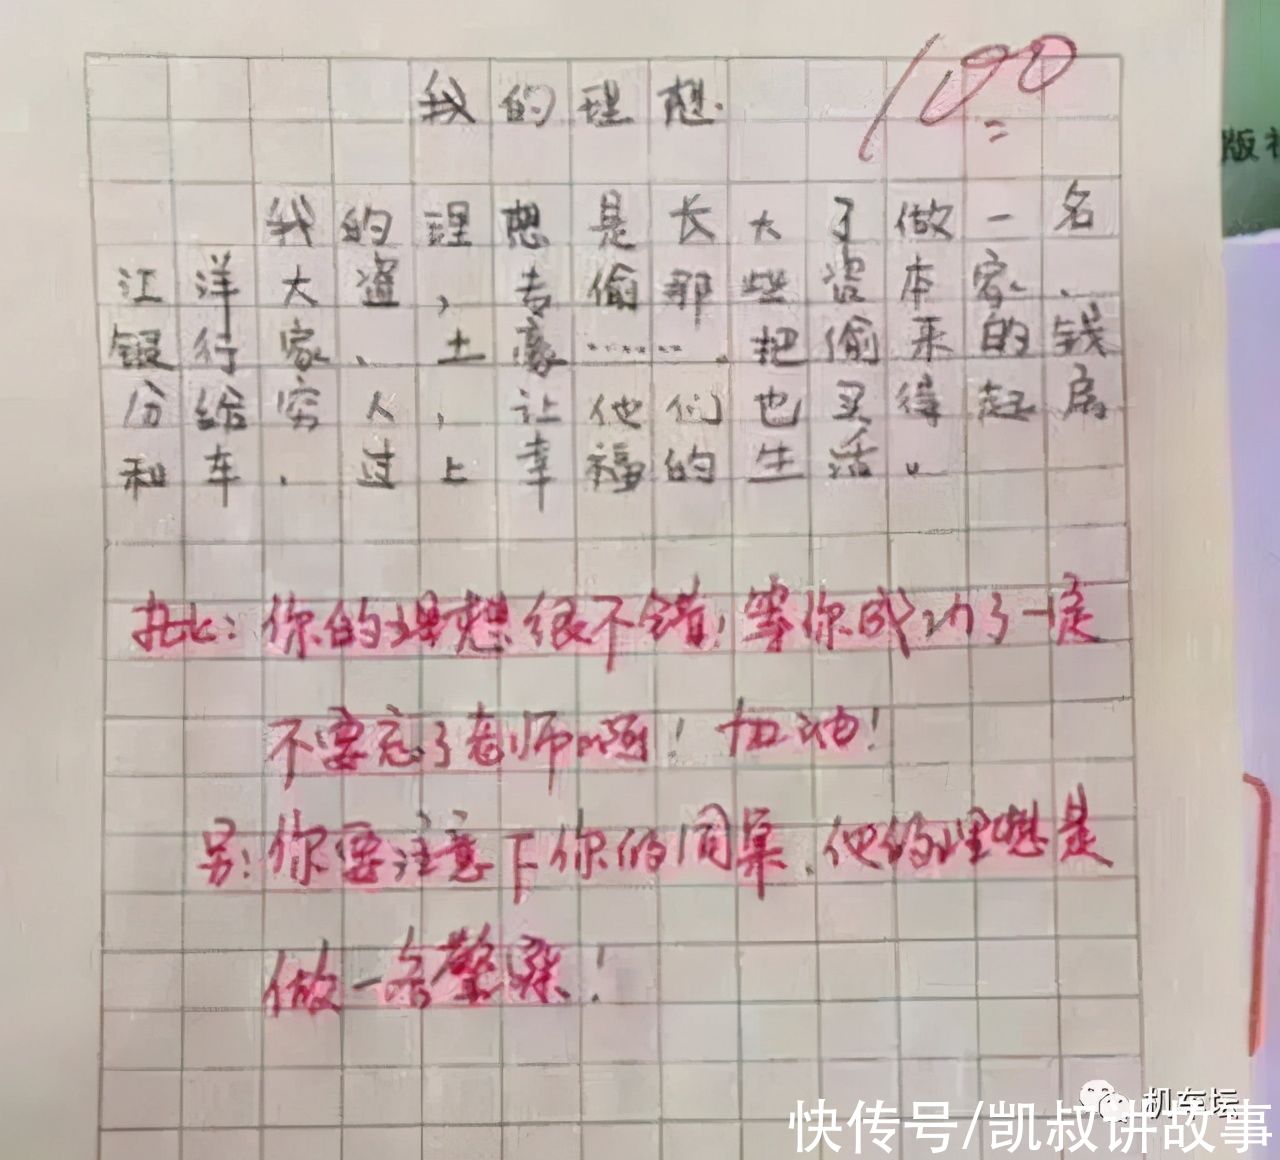 我的理想
100
我的理想是长大了做一名
江洋大盗，专偷那些资本家、
银行家、土豪……，把偷来的钱
分给穷人，让他们也买得起房
和车，过上幸福的生活。
批：你的理想很不错！等你成功了一定
不要忘了老师啊！加油！
另：你要注意下你的同桌，他的理想是
做一名警察！
版社
机车坛
快传号/凯叔讲故事